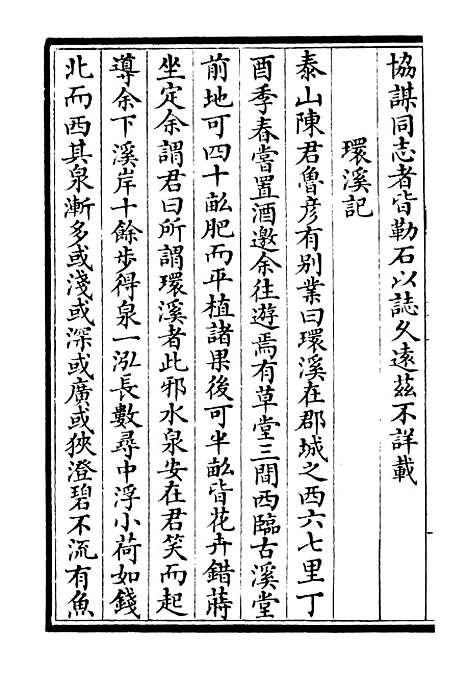 協謀同志者皆勒石以誌久遠茲不詳載
環溪記
泰山陳君魯彦有别業曰環溪在郡城之西六七里丁
酉季春嘗置酒邀余往遊焉有草堂三間西臨古溪堂
前地可四十畝肥而平植諸果後可半畝皆花卉錯蒔
坐定余謂君曰所謂環溪者此邪水泉安在君笑而起
導余下溪岸十餘步得泉一泓長數尋中浮小荷如錢
北而西其泉漸多或淺或深或廣或狹澄碧不流有魚